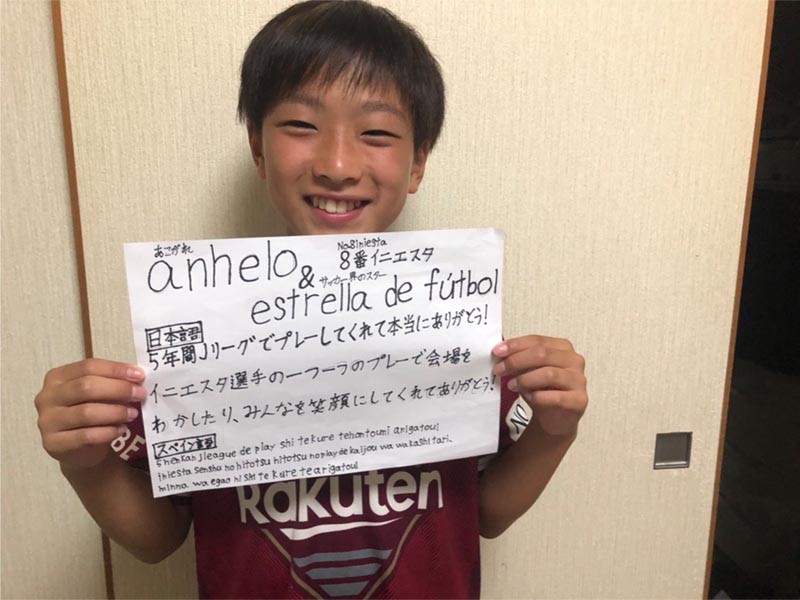 あこがれ
anhelo
No.8 Iniesta
8番イニエスタ
&
サッカー界のスター
estrella de fútbol
日本語
5年間Jリーグでプレーしてくれて本当にありがとう!
イニエスタ選手の一つ一つのプレーで会場を
わかしたり、みんなを笑顔にしてくれてありがとう!
スペイン語
5nenkan Jleague de play shi tekure tehontouni arigatou!
iniesta senshu no hitotsu hitotsu noplay de kaijou wa wakashitari.
minna wa egao ni shi te kure te arigatou!
BE
NO
Rakuten